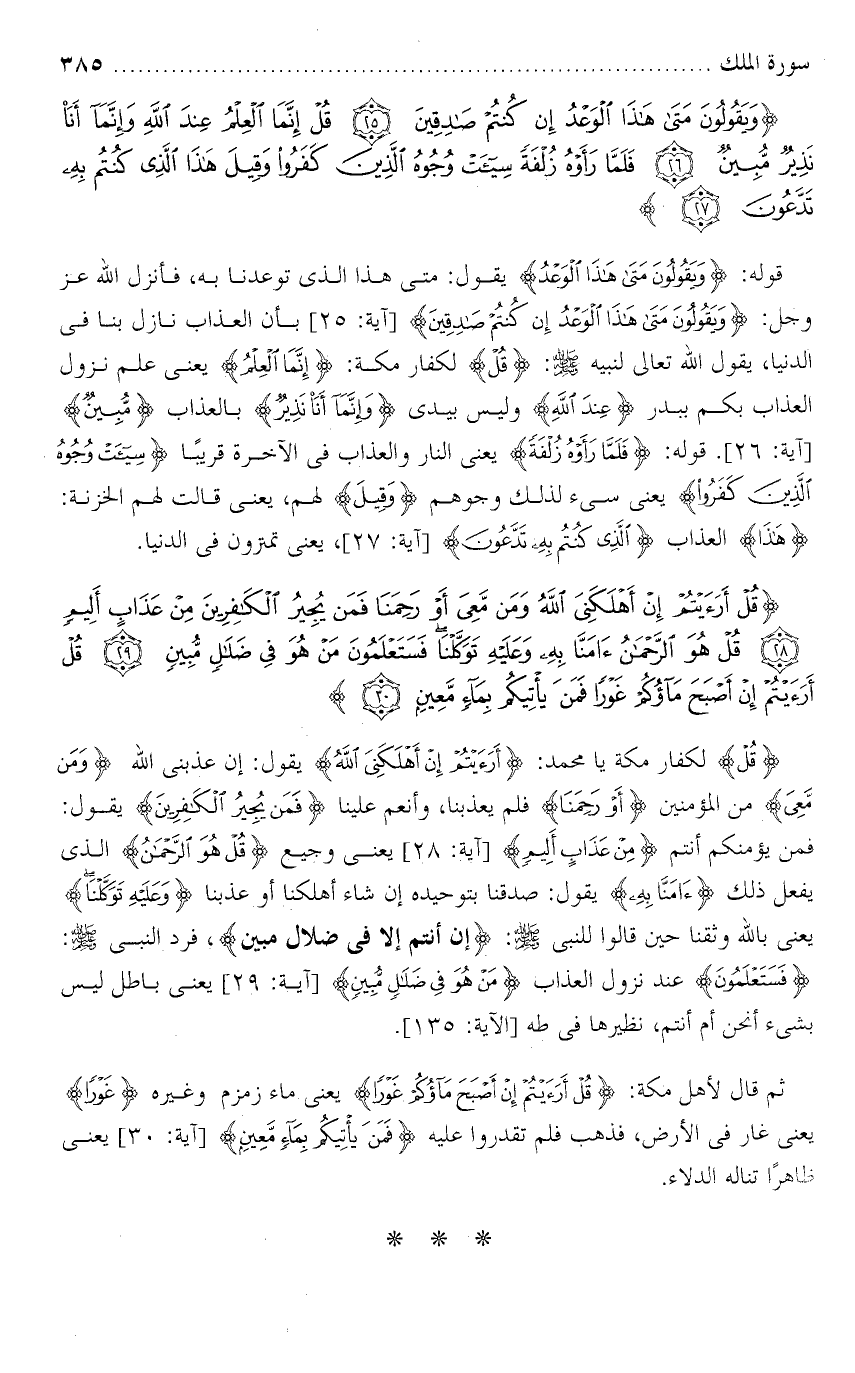 سورة الملك ........................................................................ ٣٨٥
﴿وَيَقُولُونَ مَتَىٰ هَٰذَا ٱلْوَعْدُ إِن كُنتُمْ صَٰدِقِينَ ٢٥ قُلْ إِنَّمَا ٱلْعِلْمُ عِندَ ٱللَّهِ وَإِنَّمَآ أَنَا۠
نَذِيرٌ مُّبِينٌ ٢٦ فَلَمَّا رَأَوْهُ زُلْفَةً سِيٓـَٔتْ وُجُوهُ ٱلَّذِينَ كَفَرُوا۟ وَقِيلَ هَٰذَا ٱلَّذِى كُنتُم بِهِۦ
تَدَّعُونَ ٢٧ ﴾
قوله: ﴿وَيَقُولُونَ مَتَىٰ هَٰذَا ٱلْوَعْدُ﴾ يقول: متى هذا الذى توعدنا به، فأنزل الله عز
وجل: ﴿وَيَقُولُونَ مَتَىٰ هَٰذَا ٱلْوَعْدُ إِن كُنتُمْ صَٰدِقِينَ﴾ [آية: ٢٥] بأن العذاب نازل بنا فى
الدنيا، يقول الله تعالى لنبيه ﷺ: ﴿قُلْ﴾ لكفار مكة: ﴿إِنَّمَا ٱلْعِلْمُ﴾ يعنى علم نزول
العذاب بكم ببدر ﴿عِندَ ٱللَّهِ﴾ وليس بيدى ﴿وَإِنَّمَآ أَنَا۠ نَذِيرٌ﴾ بالعذاب ﴿مُّبِينٌ﴾
[آية: ٢٦]. قوله: ﴿فَلَمَّا رَأَوْهُ زُلْفَةً﴾ يعنى النار والعذاب فى الآخرة قريبًا ﴿سِيٓـَٔتْ وُجُوهُ
ٱلَّذِينَ كَفَرُوا۟﴾ يعنى سىء لذلك وجوهم ﴿وَقِيلَ﴾ لهم، يعنى قالت لهم الخزنة:
﴿هَٰذَا﴾ العذاب ﴿ٱلَّذِى كُنتُم بِهِۦ تَدَّعُونَ﴾ [آية: ٢٧]، يعنى تمترون فى الدنيا.
﴿قُلْ أَرَءَيْتُمْ إِنْ أَهْلَكَنِىَ ٱللَّهُ وَمَن مَّعِىَ أَوْ رَحِمَنَا فَمَن يُجِيرُ ٱلْكَٰفِرِينَ مِنْ عَذَابٍ أَلِيمٍ
٢٨ قُلْ هُوَ ٱلرَّحْمَٰنُ ءَامَنَّا بِهِۦ وَعَلَيْهِ تَوَكَّلْنَا ۖ فَسَتَعْلَمُونَ مَنْ هُوَ فِى ضَلَٰلٍ مُّبِينٍ ٢٩ قُلْ
أَرَءَيْتُمْ إِنْ أَصْبَحَ مَآؤُكُمْ غَوْرًا فَمَن يَأْتِيكُم بِمَآءٍ مَّعِينٍ ٣٠ ﴾
﴿قُلْ﴾ لكفار مكة يا محمد: ﴿أَرَءَيْتُمْ إِنْ أَهْلَكَنِىَ ٱللَّهُ﴾ يقول: إن عذبنى الله ﴿وَمَن
مَّعِىَ﴾ من المؤمنين ﴿أَوْ رَحِمَنَا﴾ فلم يعذبنا، وأنعم علينا ﴿فَمَن يُجِيرُ ٱلْكَٰفِرِينَ﴾ يقول:
فمن يؤمنكم أنتم ﴿مِنْ عَذَابٍ أَلِيمٍ﴾ [آية: ٢٨] يعنى وجيع ﴿قُلْ هُوَ ٱلرَّحْمَٰنُ﴾ الذى
يفعل ذلك ﴿ءَامَنَّا بِهِۦ﴾ يقول: صدقنا بتوحيده إن شاء أهلكنا أو عذبنا ﴿وَعَلَيْهِ تَوَكَّلْنَا ۖ﴾
يعنى بالله وثقنا حين قالوا للنبى ﷺ: ﴿إن أنتم إلا فى ضلال مبين﴾، فرد النبى ﷺ:
﴿فَسَتَعْلَمُونَ﴾ عند نزول العذاب ﴿مَنْ هُوَ فِى ضَلَٰلٍ مُّبِينٍ﴾ [آية: ٢٩] يعنى باطل ليس
بشىء أنحن أم أنتم، نظيرها فى طه [الآية: ١٣٥].
ثم قال لأهل مكة: ﴿قُلْ أَرَءَيْتُمْ إِنْ أَصْبَحَ مَآؤُكُمْ غَوْرًا﴾ يعنى ماء زمزم وغيره ﴿غَوْرًا﴾
يعنى غار فى الأرض، فذهب فلم تقدروا عليه ﴿فَمَن يَأْتِيكُم بِمَآءٍ مَّعِينٍ﴾ [آية: ٣٠] يعنى
ظاهرًا تناله الدلاء.
* * *